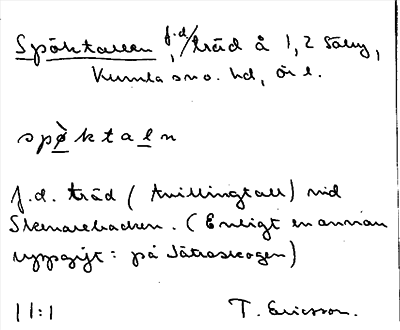 Spöktallen, f.d./träd å 1,2 Säby,
Kumla sn o. hd, Ör l.
spø̀ktaln
f.d. träd (tvillingtall) vid
Stenarebacken. (Enligt en annan
uppgift: på Sätraskogen)
11:1 T. Ericsson.